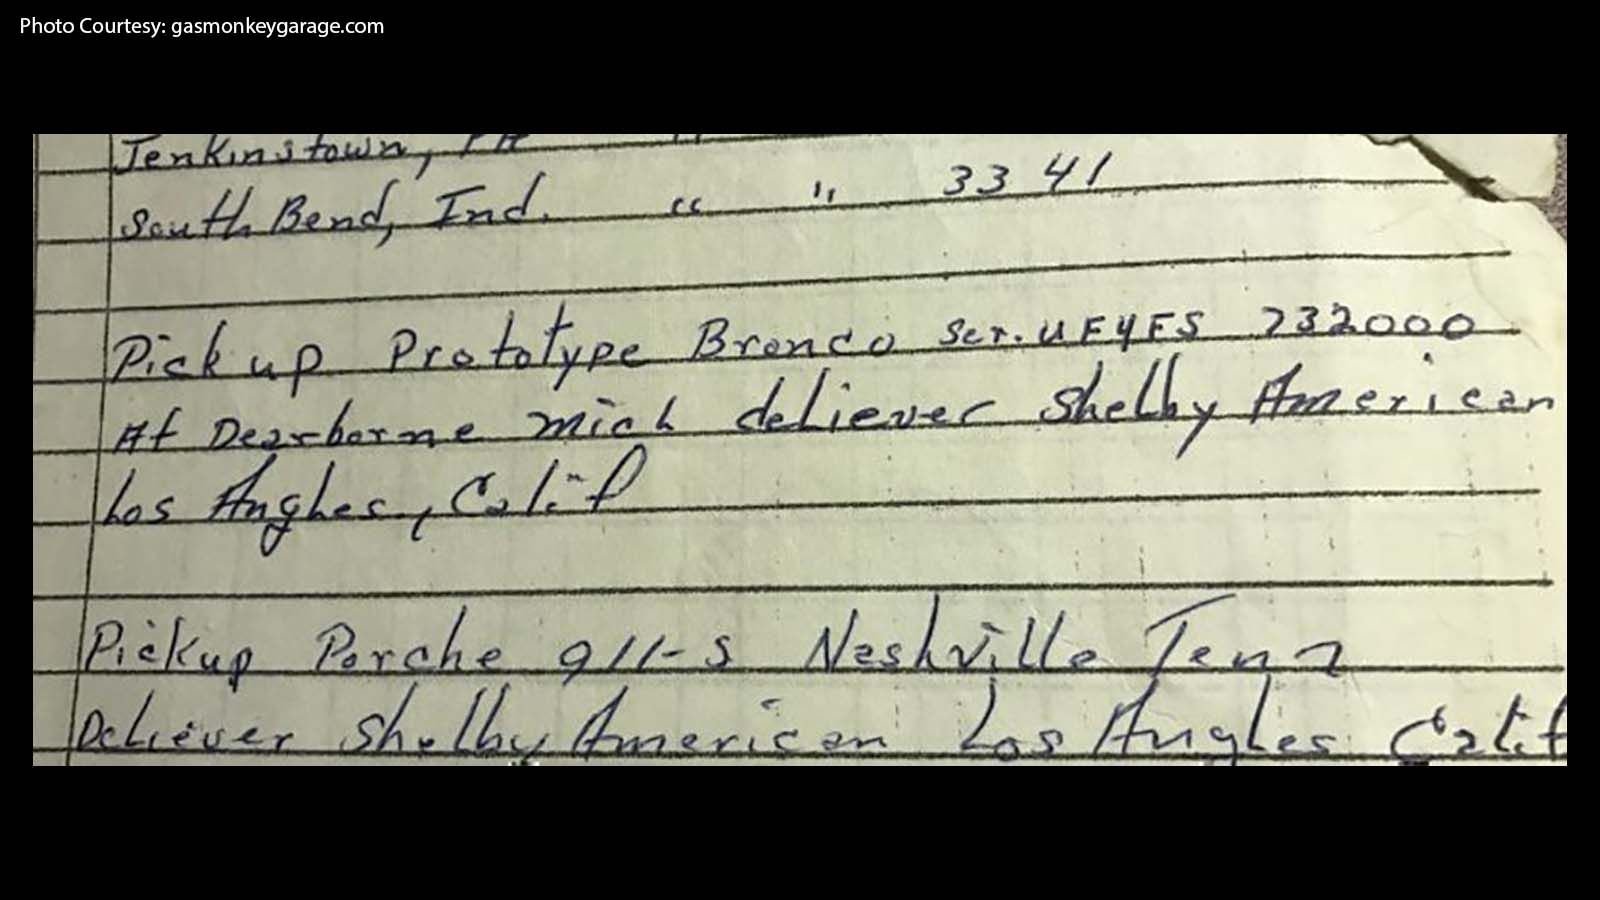 Photo Courtesy: gasmonkeygarage.com
Jenkinstown, PA "
South Bend, Ind. " " 33 41
Pick up Prototype Bronco Ser. U FYFS 732000
At Dearborne Mich deliever Shelby American
Los Angles, Calif
Pickup Porche 911-S Nashville Tenn
Deliever Shelby American Los Angles Calif